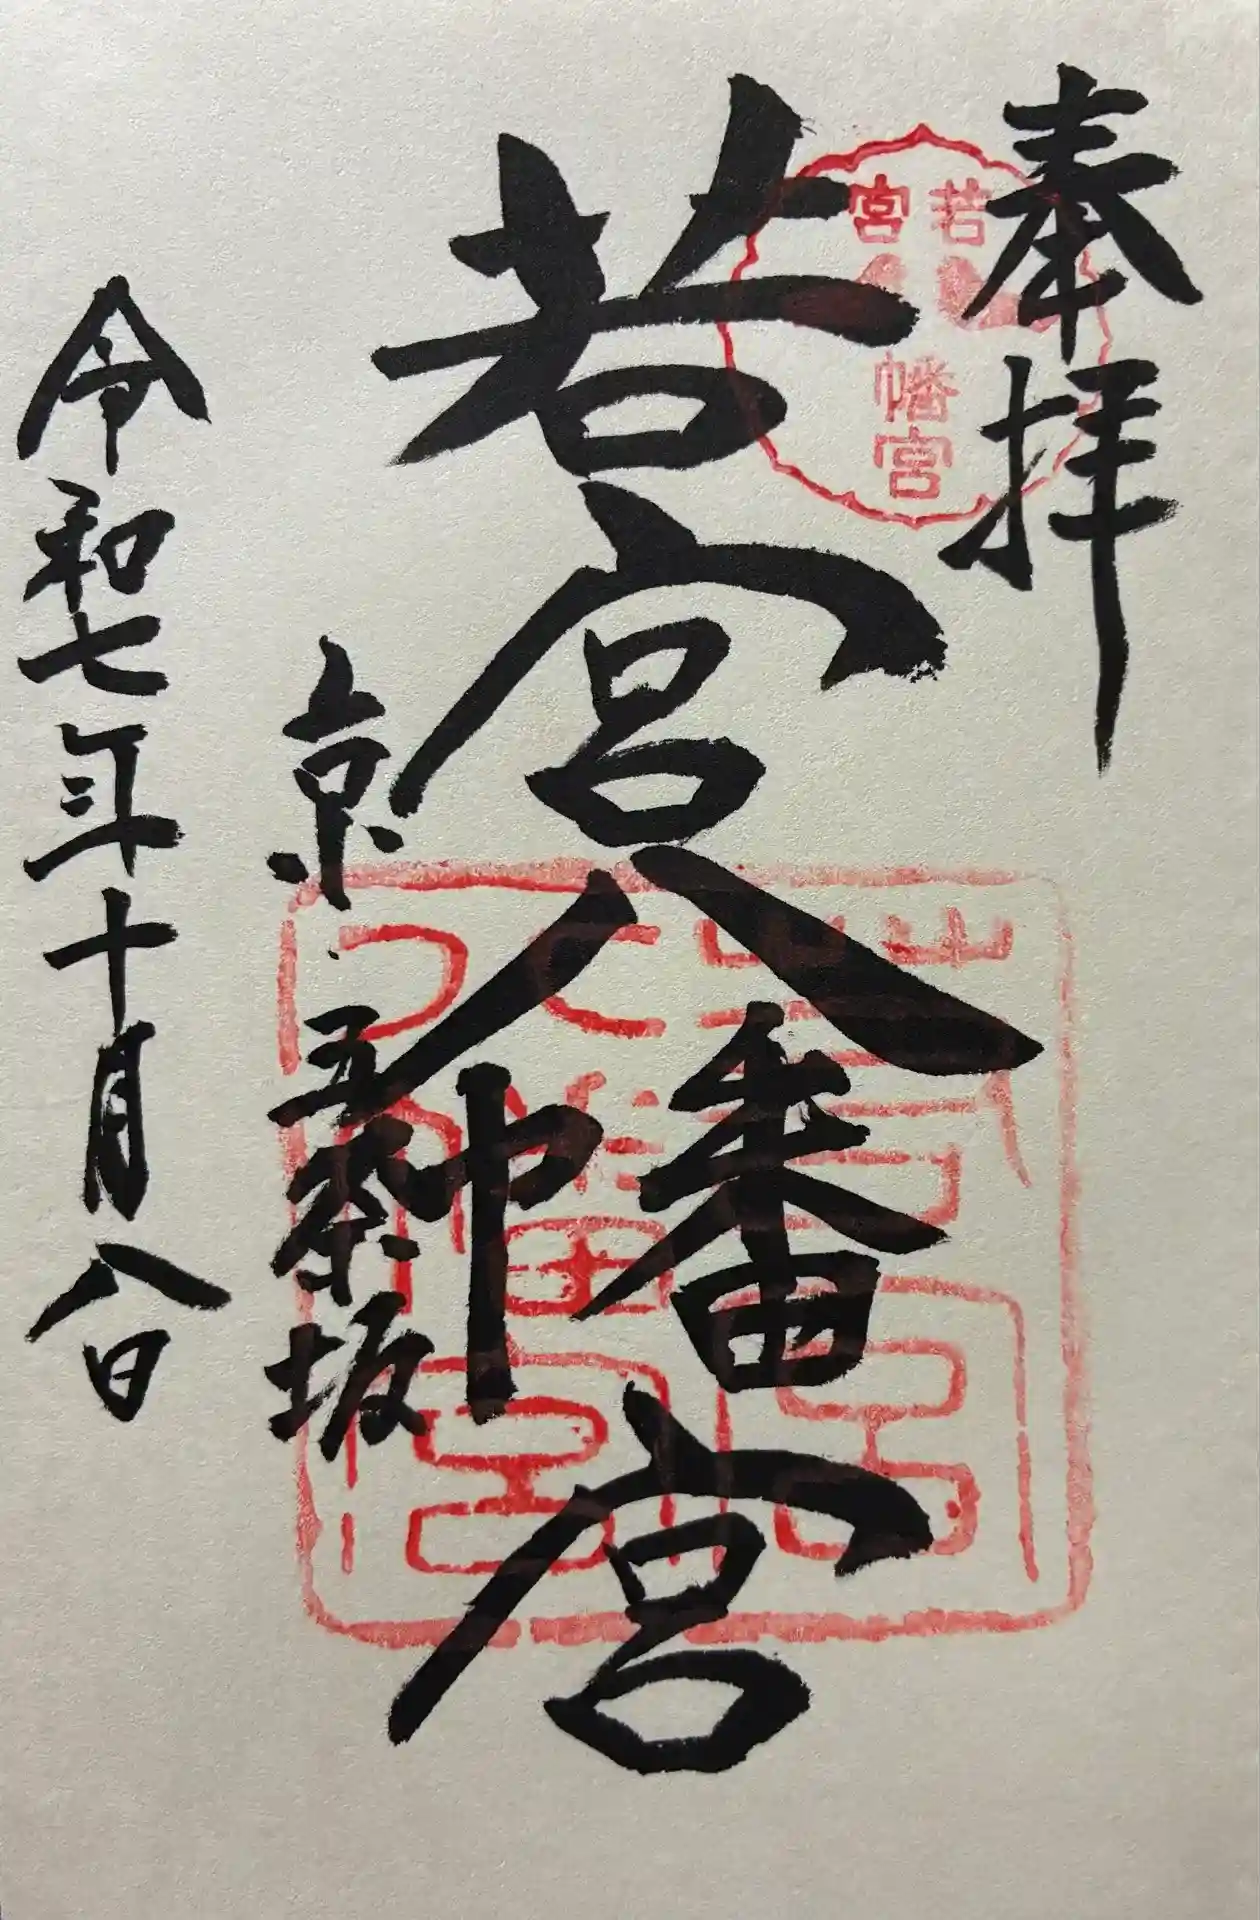 奉拝
若宮
幡宮
若宮八幡宮
京五条坂
令和七年十月八日
若宮八幡宮